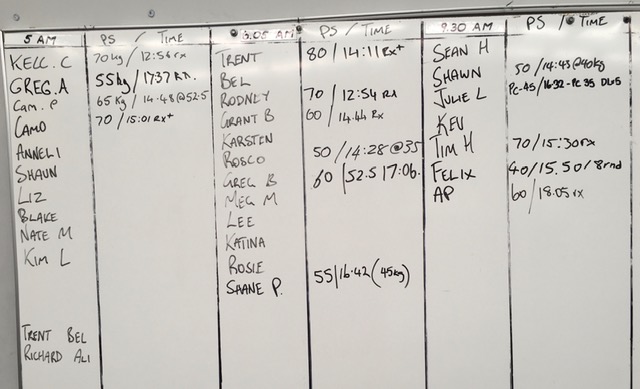 5 AM PS / TIME
KELL. C 70kg / 12:56 rx
GREG. A 55kg / 17:37 Rx.
Cam. P 65kg / 14-48@52.5
CAMO 70 / 15:01 Rx+
ANNELI
SHAUN
LIZ
BLAKE
NATE M
KIM L
TRENT BEL
RICHARD ALI
6.05 AM PS / TIME
TRENT 80 / 14:11 Rx+
BEL
RODNEY 70 / 12:54 Rx
GRANT B 60 / 14.44 Rx
KARSTEN
ROSCO 50 / 14:28 @35
GREG B 60 / 52.5 17:06.
MEG M
LEE
KATINA
ROSIE
SHANE P. 55 / 16.42 (45kg)
9.30 AM PS / TIME
SEAN H
SHAWN 50 / 14:43 @40kg
JULIE L PC-45 / 16:32 - PC 35 DL65
KEV
TIM H 70 / 15:30 rx
FELIX 40 / 15.50 / 8rnd
AP 60 / 18.05 rx